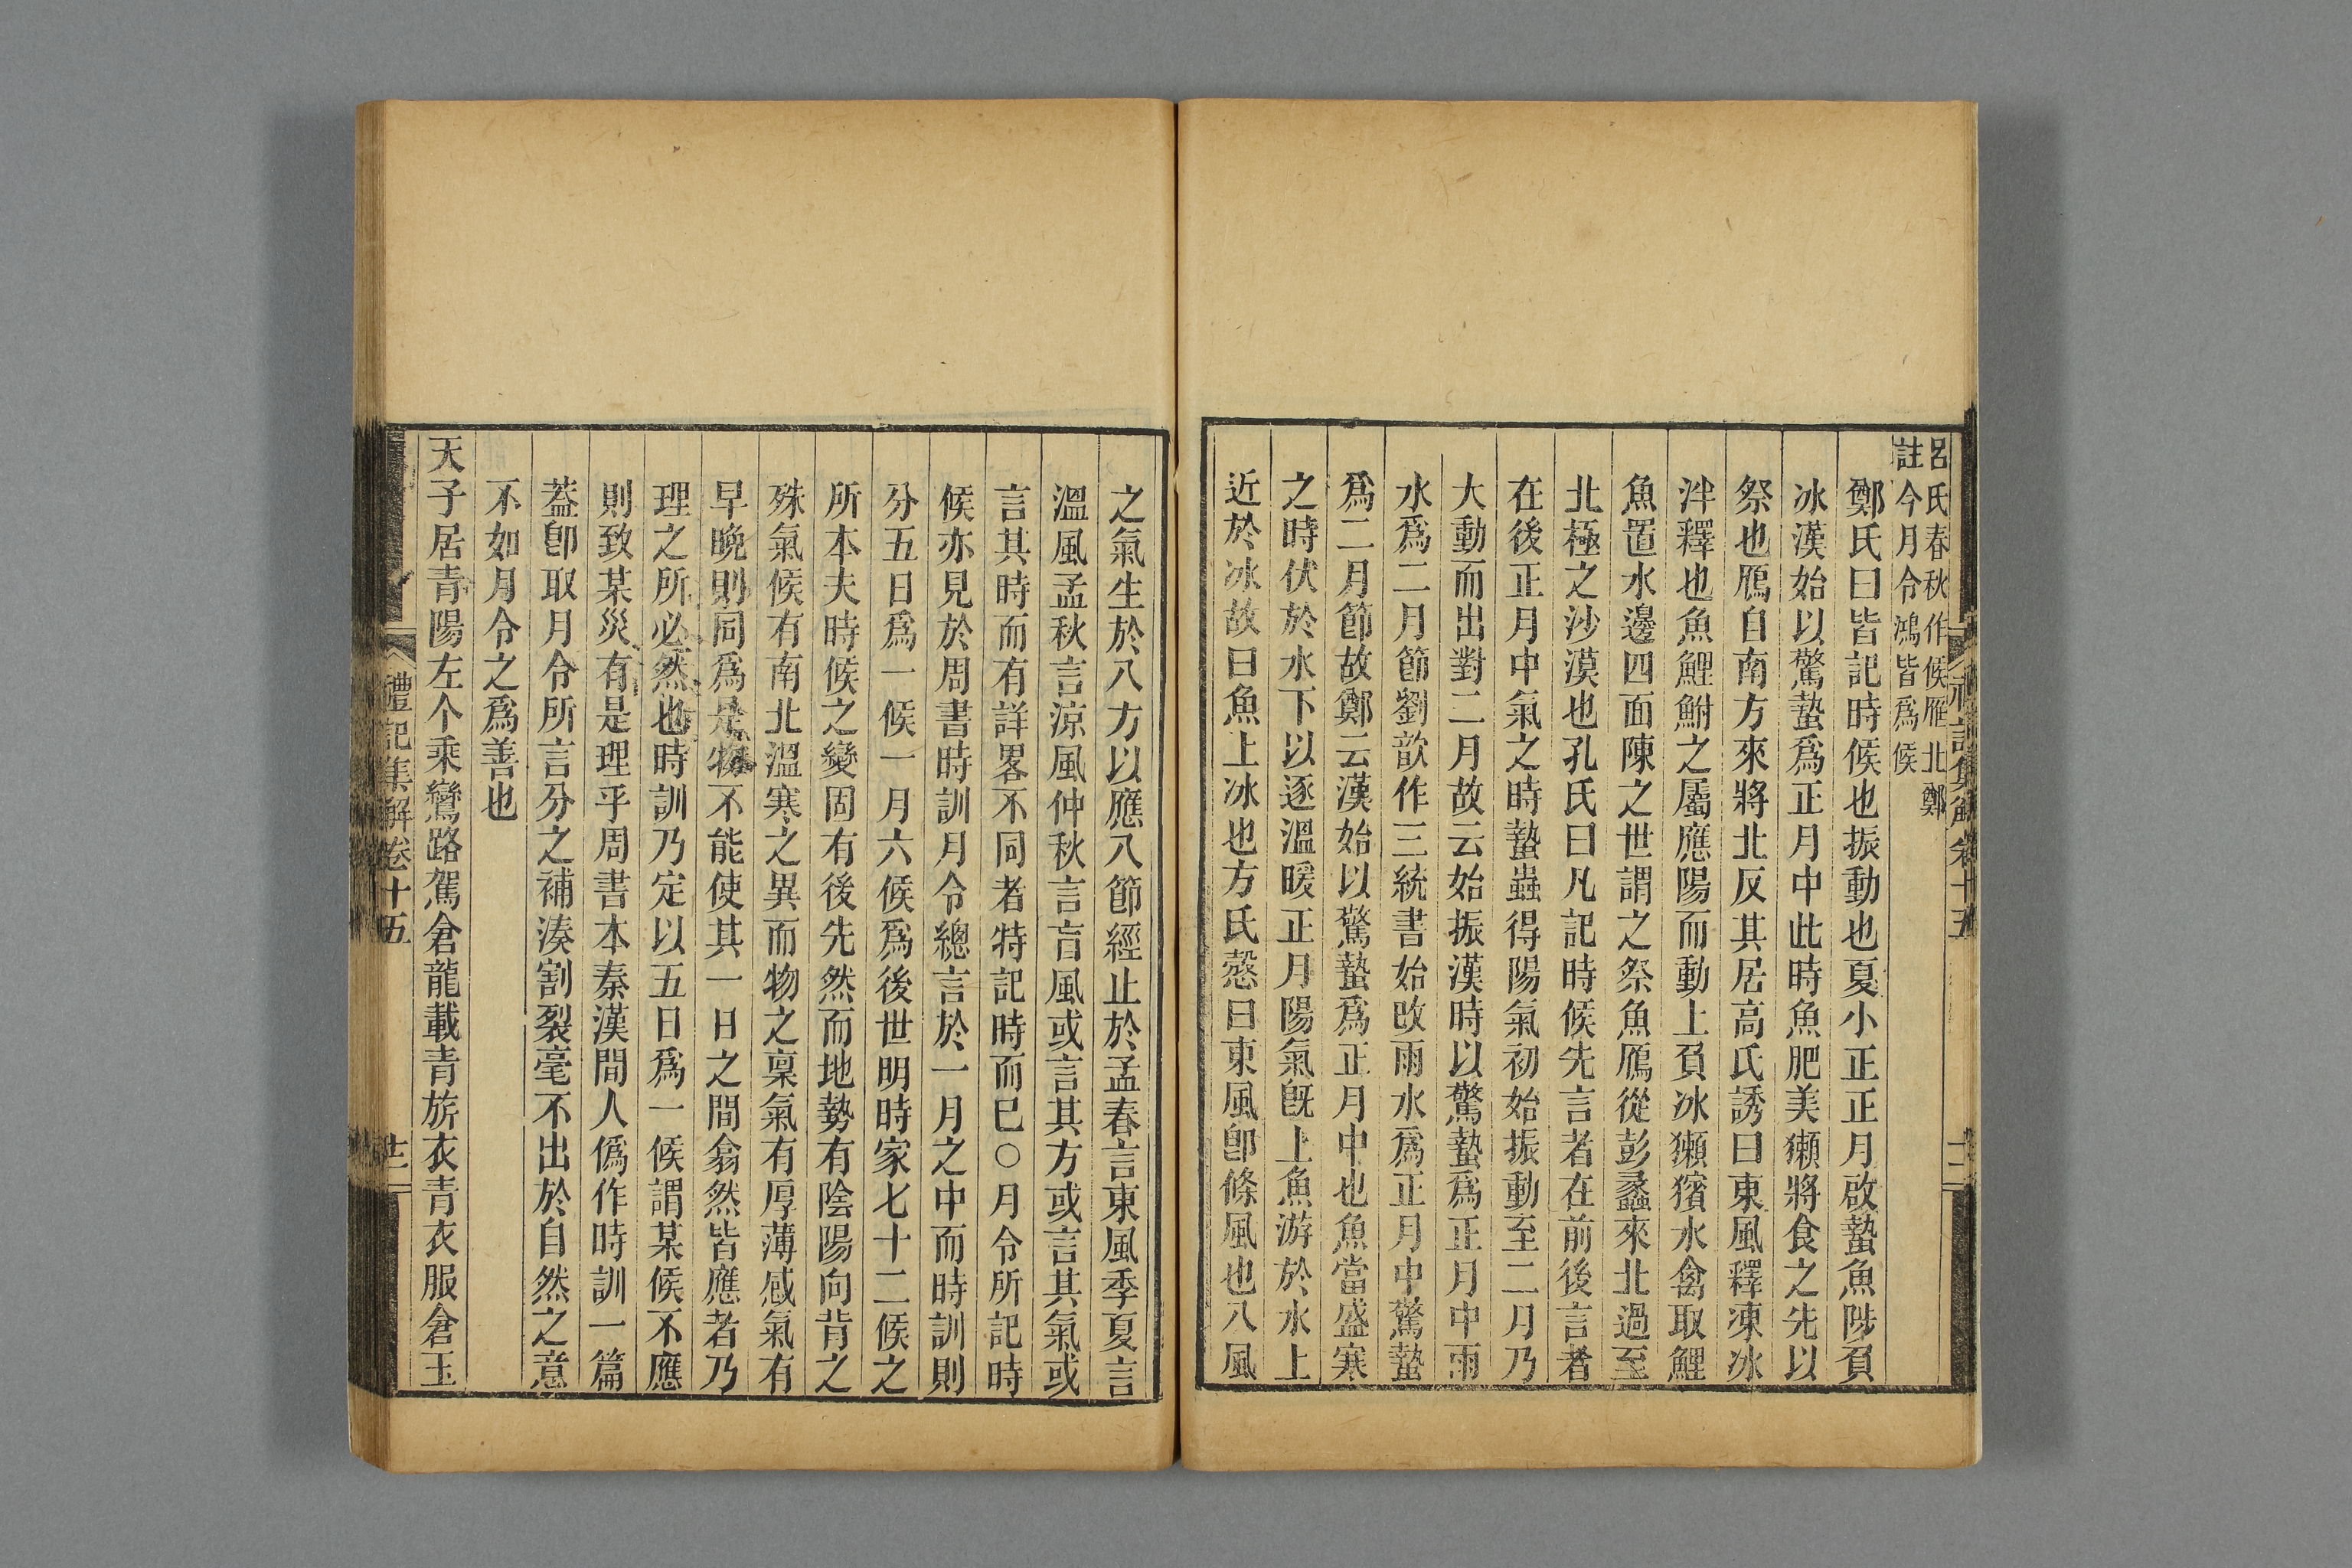 呂氏春秋作候雁北鄭
註今月令鴻皆爲候
鄭氏曰皆記時候也振動也夏小正正月啟蟄魚陟負
冰漢始以驚蟄爲正月中此時魚肥美獺將食之先以
祭也鴈自南方來將北反其居高氏誘曰東風釋凍冰
泮釋也魚鯉鮒之屬應陽而動上負冰獺獱水禽取鯉
魚置水邊四面陳之世謂之祭魚鴈從彭蠡來北過至
北極之沙漠也孔氏曰凡記時候先言者在前後言者
在後正月中氣之時蟄蟲得陽氣初始振動至二月乃
大動而出對二月故云始振漢時以驚蟄爲正月中雨
水爲二月節劉歆作三統書始改雨水爲正月中驚蟄
爲二月節故鄭云漢始以驚蟄爲正月中也魚當盛寒
之時伏於水下以逐溫暖正月陽氣旣上魚游於水上
近於冰故曰魚上冰也方氏慤曰東風卽條風也八風
之氣生於八方以應八節經止於孟春言東風季夏言
溫風孟秋言涼風仲秋言盲風或言其方或言其氣或
言其時而有詳畧不同者特記時而已○月令所記時
候亦見於周書時訓月令總言於一月之中而時訓則
分五日爲一候一月六候爲後世明時家七十二候之
所本夫時候之變固有後先然而地勢有陰陽向背之
殊氣候有南北溫寒之異而物之稟氣有厚薄感氣有
早晚則同爲是物不能使其一日之間翕然皆應者乃
理之所必然也時訓乃定以五日爲一候謂某候不應
則致某災有是理乎周書本秦漢間人僞作時訓一篇
葢卽取月令所言分之補湊割裂毫不出於自然之意
不如月令之爲善也
天子居青陽左个乘鸞路駕倉龍載青旂衣青衣服倉玉
禮記集解卷十五